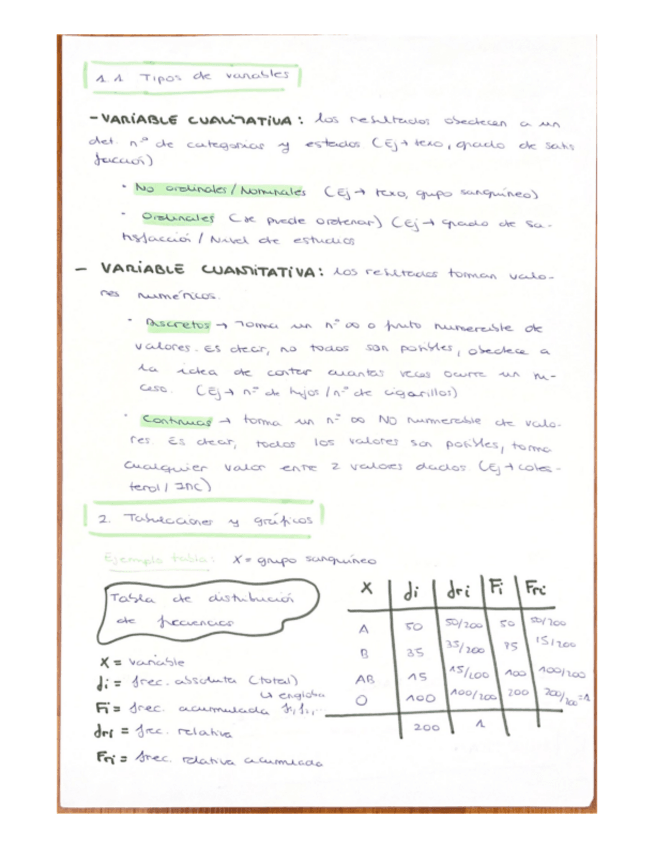 1.1 Tipos de variables
- VARIABLE CUALITATIVA: los resultados obedecen a un
det. nº de categorías y estados (Ej → sexo, grado de satis
facción)
· No ordinales/Nominales (Ej → sexo, grupo sanguíneo)
· Ordinales (se puede ordenar) (Ej → grado de sa-
tisfacción / Nivel de estudios
- VARIABLE CUANTITATIVA: los resultados toman valo-
res numéricos.
· Discretos → Toma un nº ∞ o finito numerable de
valores. Es decir, no todos son posibles, obedece a
la idea de contar cuantas veces ocurre un su-
ceso. (Ej → nº de hijos / nº de cigarillos)
· Continuas → toma un nº ∞ NO numerable de valo-
res. Es decir, todos los valores son posibles, toma
cualquier valor entre 2 valores dados (Ej → coles-
terol / IMC)
2. Tabulaciones y gráficos
Ejemplo tabla: X = grupo sanguíneo
Tabla de distribución
de frecuencias
X = variable
fi = frec. absoluta (total)
↳ engloba
Fi = frec. acumulada
fri = frec. relativa
Fri = frec. relativa acumulada
X fi fri Fi Fri
A 50 50/200 50 50/200
B 35 35/200
AB 15 15/200 100 100/200
O 100 100/200 200 200/200=1
200 1